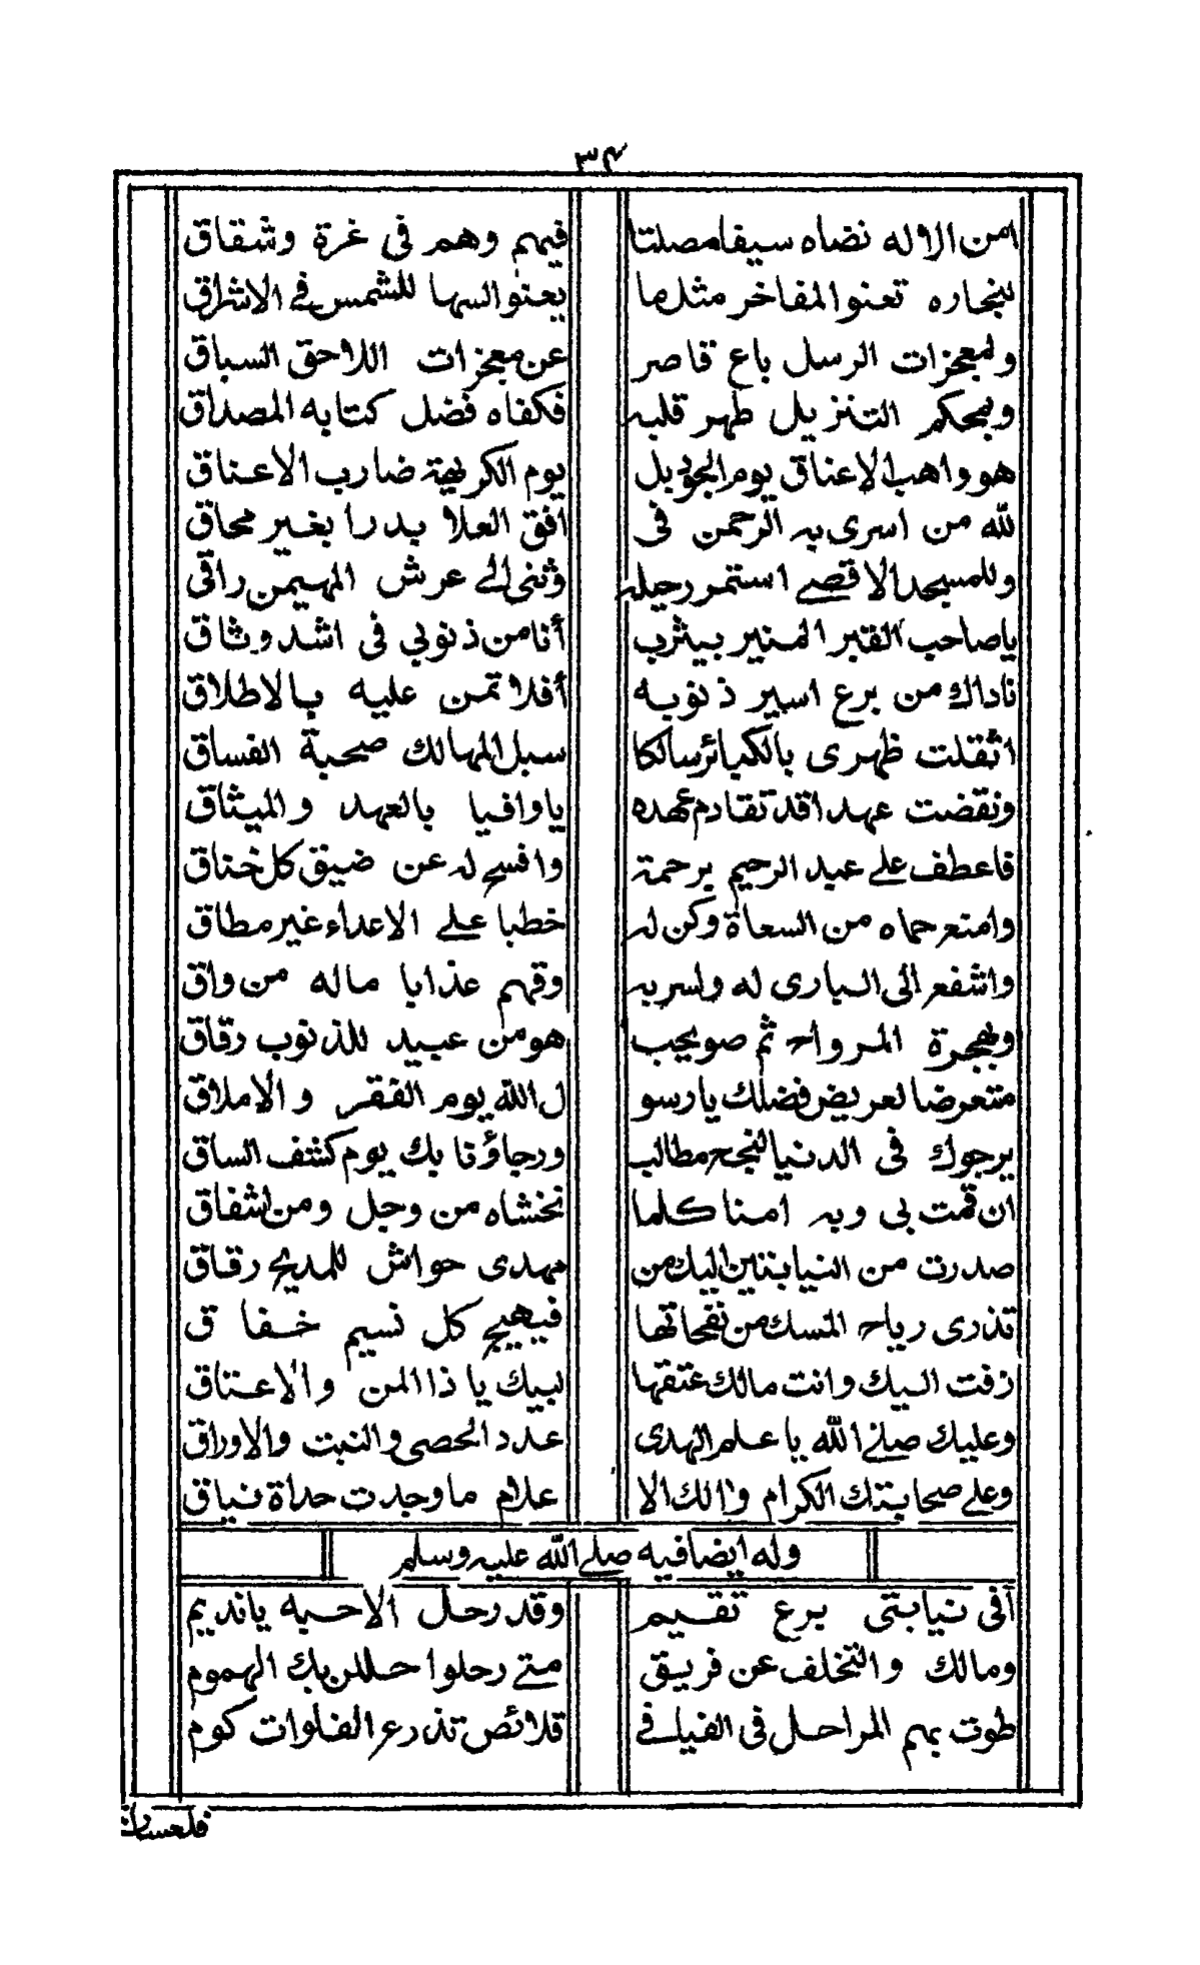 ٣٤
امن الاله نضاه سيفا مصلتا فيهم وهم فى غرة وشقاق
لنجاره تعنوا المفاخر مثل ما يعنوا السها للشمس فى الاشراق
ولمعجزات الرسل باع قاصر عن معجزات اللاحق السباق
وبمحكم التنزيل طهر قلبه فكفاه فضل كتابه المصداق
هو واهب الاعناق يوم الجود بل يوم الكريهة ضارب الاعناق
لله من اسرى به الرحمن فى افق العلا بدرا بغير محاق
وللمسجد الاقصى استمر رحيله وثنى الى عرش المهيمن راقى
يا صاحب القبر المنير بيثرب أنا من ذنوبي فى اشد وثاق
ناداك من برع اسير ذنوبه أفلا تمن عليه بالاطلاق
اثقلت ظهرى بالكبائر سالكا سبل المهالك صحبة الفساق
ونقضت عهدا قد تقادم عهده يا وافيا بالعهد والميثاق
فاعطف على عبد الرحيم برحمة وافسح له عن ضيق كل خناق
وامنع حماه من السعاة وكن له خطبا على الاعداء غير مطاق
واشفع الى البارى له ولسربه وقهم عذابا ماله من واق
وبهجرة المرواح ثم صويحب هو من عبيد للذنوب رقاق
متعرضا لعريض فضلك يا رسو ل الله يوم الفقر والاملاق
يرجوك فى الدنيا لنجح مطالب ورجاؤنا بك يوم كشف الساق
ان قمت بى وبه امنا كلما نخشاه من وجل ومن اشفاق
صدرت من النيابتين اليك من مهدى حواش للمديح رقاق
تذرى رياح المسك من نفحاتها فيهيج كل نسيم خفا ق
زفت اليك وانت مالك عتقها لبيك يا ذا المن والاعتاق
وعليك صلى الله يا علم الهدى عدد الحصى والنبت والاوراق
وعلى صحابتك الكرام والك الا علام ما وجدت حداة نياق
وله ايضا فيه صلى الله عليه وسلم
أفى نيابتى برع تقيم وقد رحل الاحبه يا نديم
ومالك والتخلف عن فريق متى رحلوا حللن بك الهموم
طوت بهم المراحل فى الفيافى قلائص تذرع الفلوات كوم